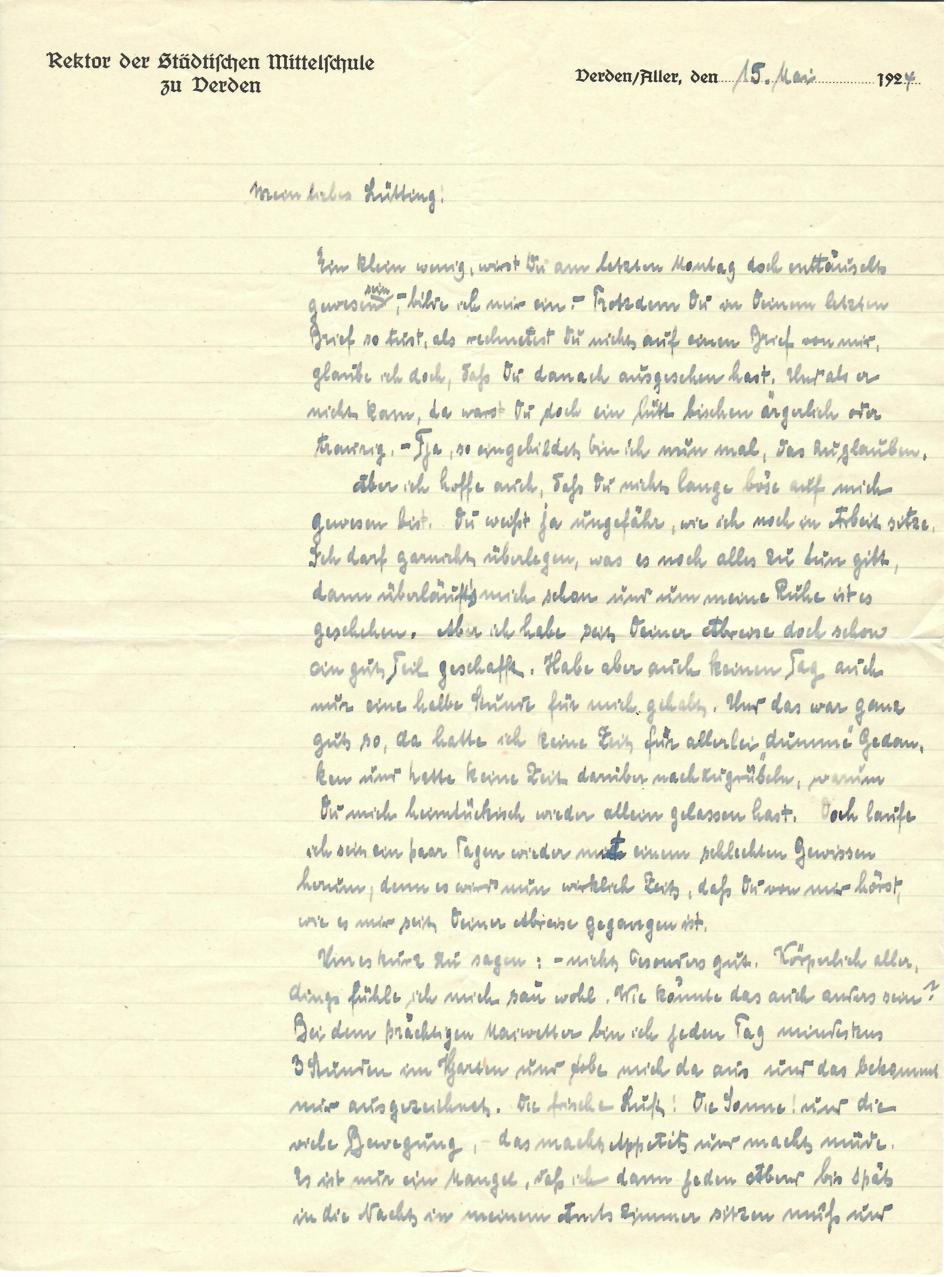 Rektor der Städtischen Mittelschule
zu Verden
Verden/Aller, den 15. Mai 1924
Mein liebes Hütting!
Ein klein wenig, wirst Du am letzten Montag doch enttäuscht
gewesen sein, – bilde ich mir ein. – Trotzdem Du in Deinem letzten
Brief so tust, als rechnetest Du nicht auf einen Brief von mir,
glaube ich doch, daß Du danach ausgesehen hast. Und als er
nicht kam, da warst Du doch ein lütt bischen ärgerlich oder
traurig. – Tja, so eingebildet bin ich nun mal, das zu glauben.
Aber ich hoffe auch, daß Du nicht lange böse auf mich
gewesen bist. Du weißt ja ungefähr, wie ich noch in Arbeit sitze.
Ich darf garnicht überlegen, was es noch alles zu tun gibt,
dann überläuft's mich schon und um meine Ruhe ist es
geschehen. Aber ich habe seit Deiner Abreise doch schon
ein gut Teil geschafft. Habe aber auch keinen Tag auch
nur eine halbe Stunde für mich gehabt. Und das war ganz
gut so, da hatte ich keine Zeit für allerlei „dumme" Gedan-
ken und hatte keine Zeit darüber nachzugrübeln, warum
Du mich heimtückisch wieder allein gelassen hast. Doch laufe
ich seit ein paar Tagen wieder mit einem schlechten Gewissen
herum, denn es wird nun wirklich Zeit, daß Du von mir hörst,
wie es mir seit Deiner Abreise gegangen ist.
Um es kurz zu sagen: – nicht besonders gut. Körperlich aller-
dings fühle ich mich sau wohl. Wie könnte das auch anders sein?
Bei dem prächtigen Maiwetter bin ich jeden Tag mindestens
3 Stunden im Garten und tobe mich da aus und das bekommt
mir ausgezeichnet. Die frische Luft! Die Sonne! und die
viele Bewegung, – das macht Appetit und macht müde.
Es ist nur ein Mangel, daß ich dann jeden Abend bis spät
in die Nacht in meinem Amtszimmer sitzen muß und